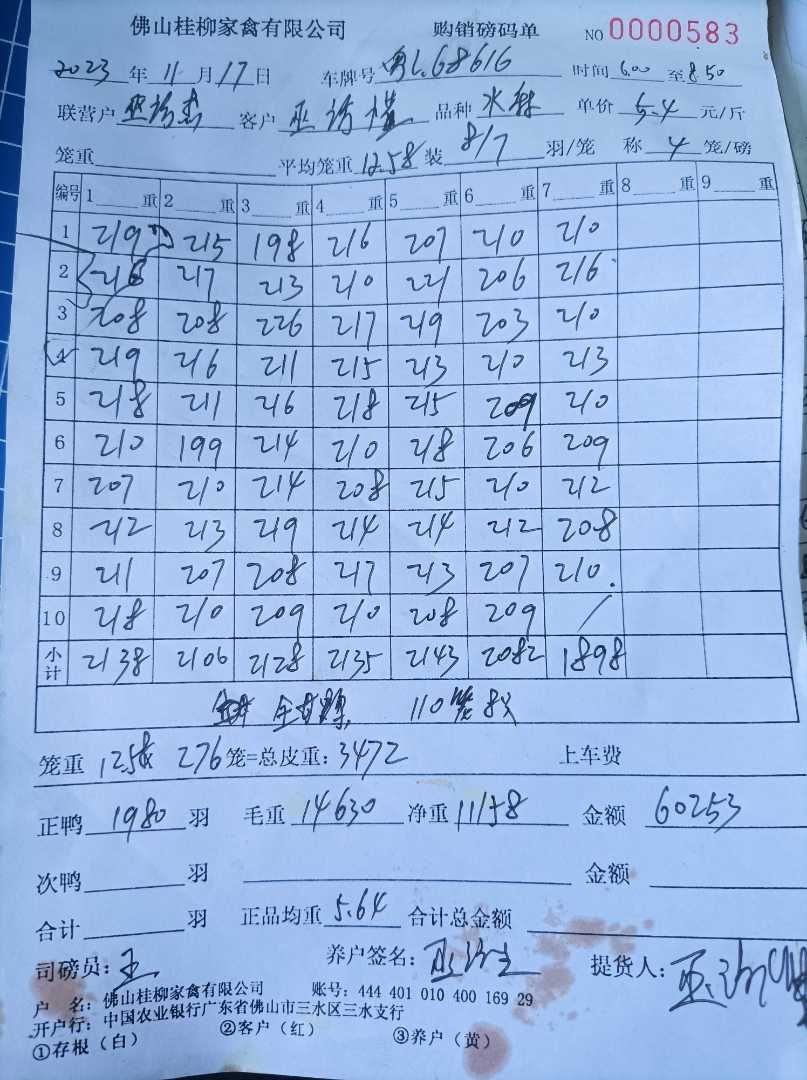 佛山桂柳家禽有限公司 购销磅码单 NO 0000583
2023年11月17日 车牌号 粤L68616 时间 6.00 至 8.50
联营户 客户 品种 水 单价 5.4 元/斤
笼重 平均笼重 12.58 装 8/7 羽/笼 称 4 笼/磅
编号 1 重 2 重 3 重 4 重 5 重 6 重 7 重 8 重 9 重
1 219 215 198 216 207 210 210
2 216 217 213 210 221 206 216
3 208 208 226 217 219 203 210
4 219 216 211 215 213 210 213
5 218 211 216 218 215 209 210
6 210 199 214 210 218 206 209
7 207 210 214 208 215 210 212
8 212 213 219 214 214 212 208
9 211 207 208 217 213 207 210.
10 218 210 209 210 208 209 /
小计 2138 2106 2128 2135 2143 2082 1898
110笼
笼重 12.58 276笼=总皮重：3472 上车费
正鸭 1980 羽 毛重 14630 净重 11158 金额 60253
次鸭 羽 金额
合计 羽 正品均重 5.64 合计总金额
司磅员： 养户签名： 提货人：
户 名：佛山桂柳家禽有限公司 账号：444 401 010 400 169 29
开户行：中国农业银行广东省佛山市三水区三水支行
①存根（白） ②客户（红） ③养户（黄）